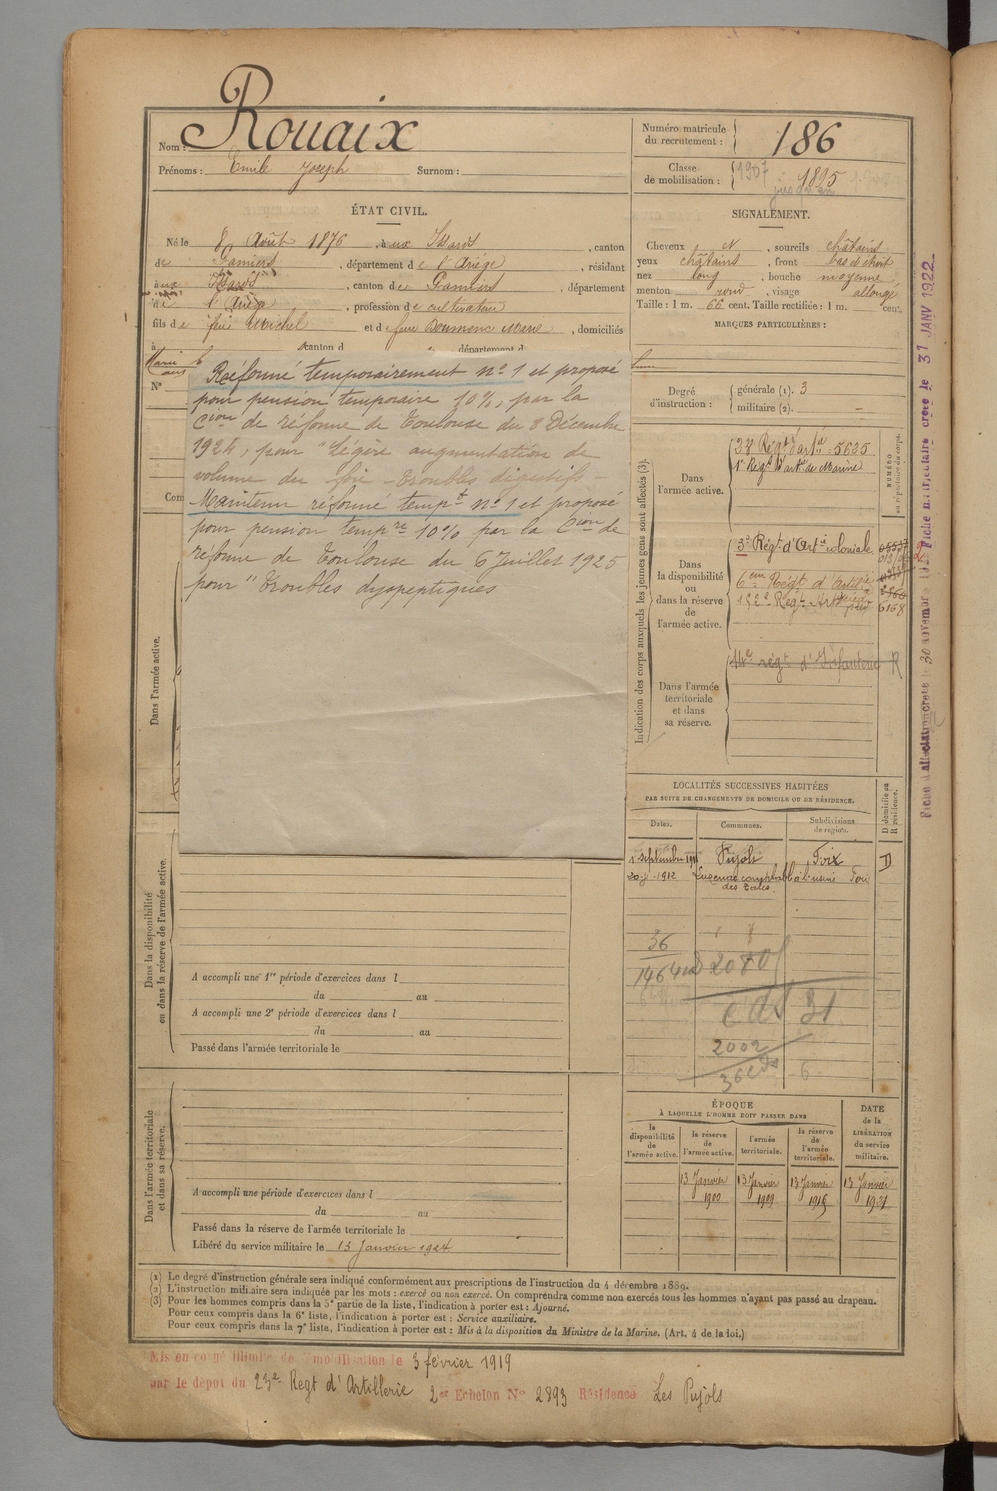 Nom : Rouaix
Prénoms : Emile Joseph Surnom :
Numéro matricule du recrutement : 186
Classe de mobilisation : 1907 1895
jusqu'en
ÉTAT CIVIL.
Né le 8 Août 1876, à aux Issards, canton
de Pamiers, département de l'Ariège, résidant
aux Issards, canton de Pamiers, département
de l'Ariège, profession de cultivateur
fils de feu Michel et de feue Marie, domiciliés
à canton d département d
N°
Com
Réformé temporairement n° 1 et proposé
pour pension temporaire 10%, par la
Cion de réforme de Toulouse du 8 Décembre
1924, pour "Légère augmentation de
volume du foie. Troubles digestifs -
Maintenu réformé tempt n° 1 et proposé
pour pension tempre 10% par la Cion de
réforme de Toulouse du 6 Juillet 1925
pour "Troubles dyspeptiques
Dans l'armée active.
Dans la disponibilité
ou dans la réserve de l'armée active.
A accompli une 1re période d'exercices dans l
du au
A accompli une 2e période d'exercices dans l
du au
Passé dans l'armée territoriale le
Dans l'armée territoriale
et dans sa réserve.
A accompli une période d'exercices dans l
du au
Passé dans la réserve de l'armée territoriale le
Libéré du service militaire le 13 Janvier 1924
SIGNALEMENT.
Cheveux N, sourcils châtains
yeux châtains, front bas et étroit
nez long, bouche moyenne
menton rond, visage allongé
Taille : 1 m. 66 cent. Taille rectifiée : 1 m. cent.
MARQUES PARTICULIÈRES :
Degré d'instruction :
générale (1). 3
militaire (2). -
Indication des corps auxquels les jeunes gens sont affectés (3).
NUMÉRO
au répertoire du corps.
Dans l'armée active.
38 Régt d'artie : 5635
1r Régt d'artie de Marine
Dans la disponibilité ou dans la réserve de l'armée active.
3e Régt d'Artie coloniale
6eme Régt d'Artillie
Régt Artie à pied 6168
Dans l'armée territoriale et dans sa réserve.
14e régt d'Infanterie R
LOCALITÉS SUCCESSIVES HABITÉES
PAR SUITE DE CHANGEMENTS DE DOMICILE OU DE RÉSIDENCE.
Dates. Communes. Subdivisions de région. D domicile ou R résidence.
1r septembre Pujols Foix D
1912 Luzenac comptable à l'usine Foix
des Talcs
36
2080
31
2002
36
6
ÉPOQUE
À LAQUELLE L'HOMME DOIT PASSER DANS
DATE de la LIBÉRATION du service militaire.
la disponibilité de l'armée active.
la réserve de l'armée active.
l'armée territoriale.
la réserve de l'armée territoriale.
13 Janvier 1900 13 Janvier 1909 13 Janvier 1915 13 Janvier 1921
(1) Le degré d'instruction générale sera indiqué conformément aux prescriptions de l'instruction du 4 décembre 1889.
(2) L'instruction militaire sera indiquée par les mots : exercé ou non exercé. On comprendra comme non exercés tous les hommes n'ayant pas passé au drapeau.
(3) Pour les hommes compris dans la 5e partie de la liste, l'indication à porter est : Ajourné.
Pour ceux compris dans la 6e liste, l'indication à porter est : Service auxiliaire.
Pour ceux compris dans la 7e liste, l'indication à porter est : Mis à la disposition du Ministre de la Marine. (Art. 4 de la loi.)
Mis en congé illimité de démobilisation le 3 février 1919
par le dépôt du 23e Regt d'Artillerie 2er Echelon N° 2893 Résidence Les Pujols
Fiche d'affectation créée le 30 novembre Fiche matriculaire créée le 31 JANV 1922